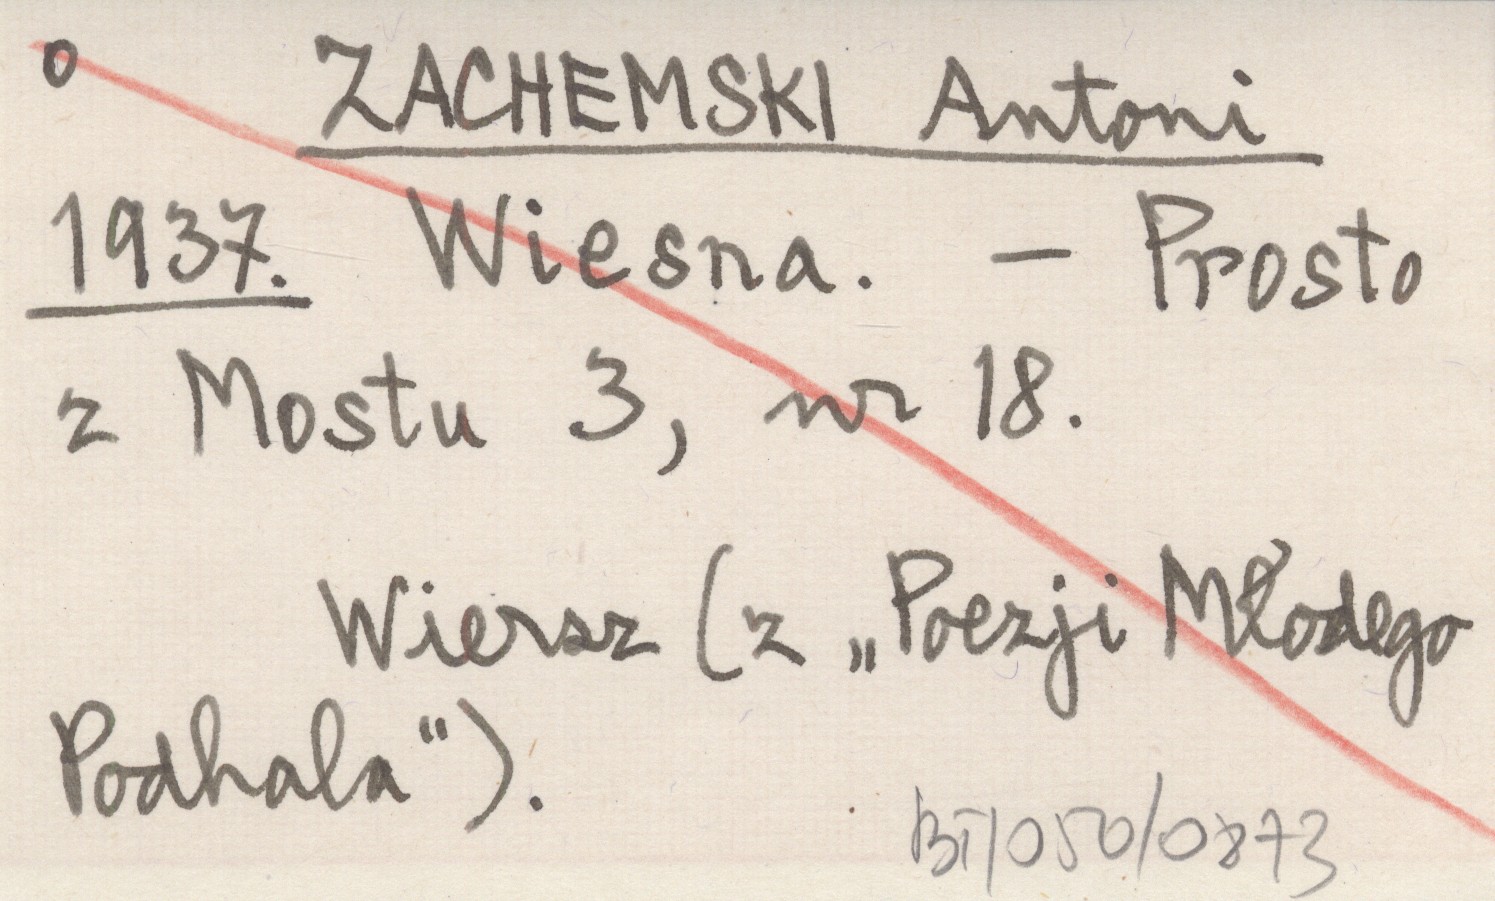 o ZACHEMSKI Antoni
1937. Wiesna. — Prosto
z Mostu 3, nr 18.
Wiersz (z „Poezji Młodego
Podhala“).
BT/050/0873